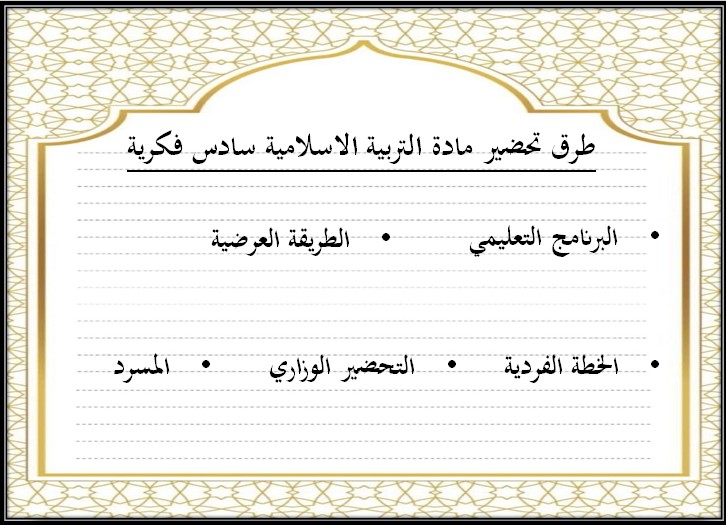 طرق تحضير مادة التربية الاسلامية سادس فكرية
• البرنامج التعليمي • الطريقة العرضية
• الخطة الفردية • التحضير الوزاري • المسرد